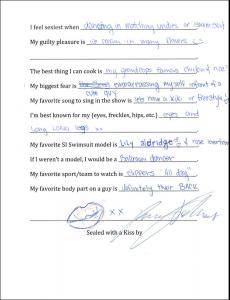 I feel sexiest when dancing in matching undies or
My guilty pleasure is ice cream in many flavors
The best thing I can cook is my grandpops famous chicken & rice
My biggest fear is embarrassing myself infront of a
cute guy
My favorite song to sing in the shower is lets have a kiki or freestyle!
I'm best known for my (eyes, freckles, hips, etc.) eyes and
long legs xx
My favorite SI Swimsuit model is Lily aldridge & rose
If I weren't a model, I would be a Ballroom dancer
My favorite sport/team to watch is clippers "all day"
My favorite body part on a guy is definitely their BACK
xx
Sealed with a Kiss by